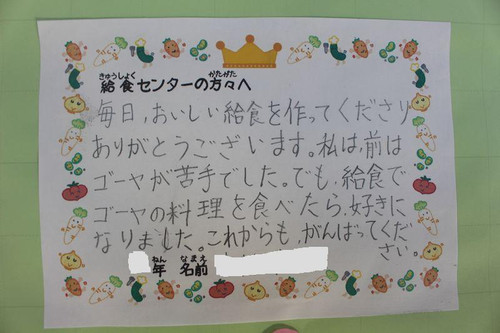 きゅうしょく かたがた
給食センターの方々へ
毎日、おいしい給食を作ってくださり
ありがとうございます。私は、前は
ゴーヤが苦手でした。でも、給食で
ゴーヤの料理を食べたら、好きに
なりました。これからも、がんばってくだ
さい。
ねん なまえ
年 名前